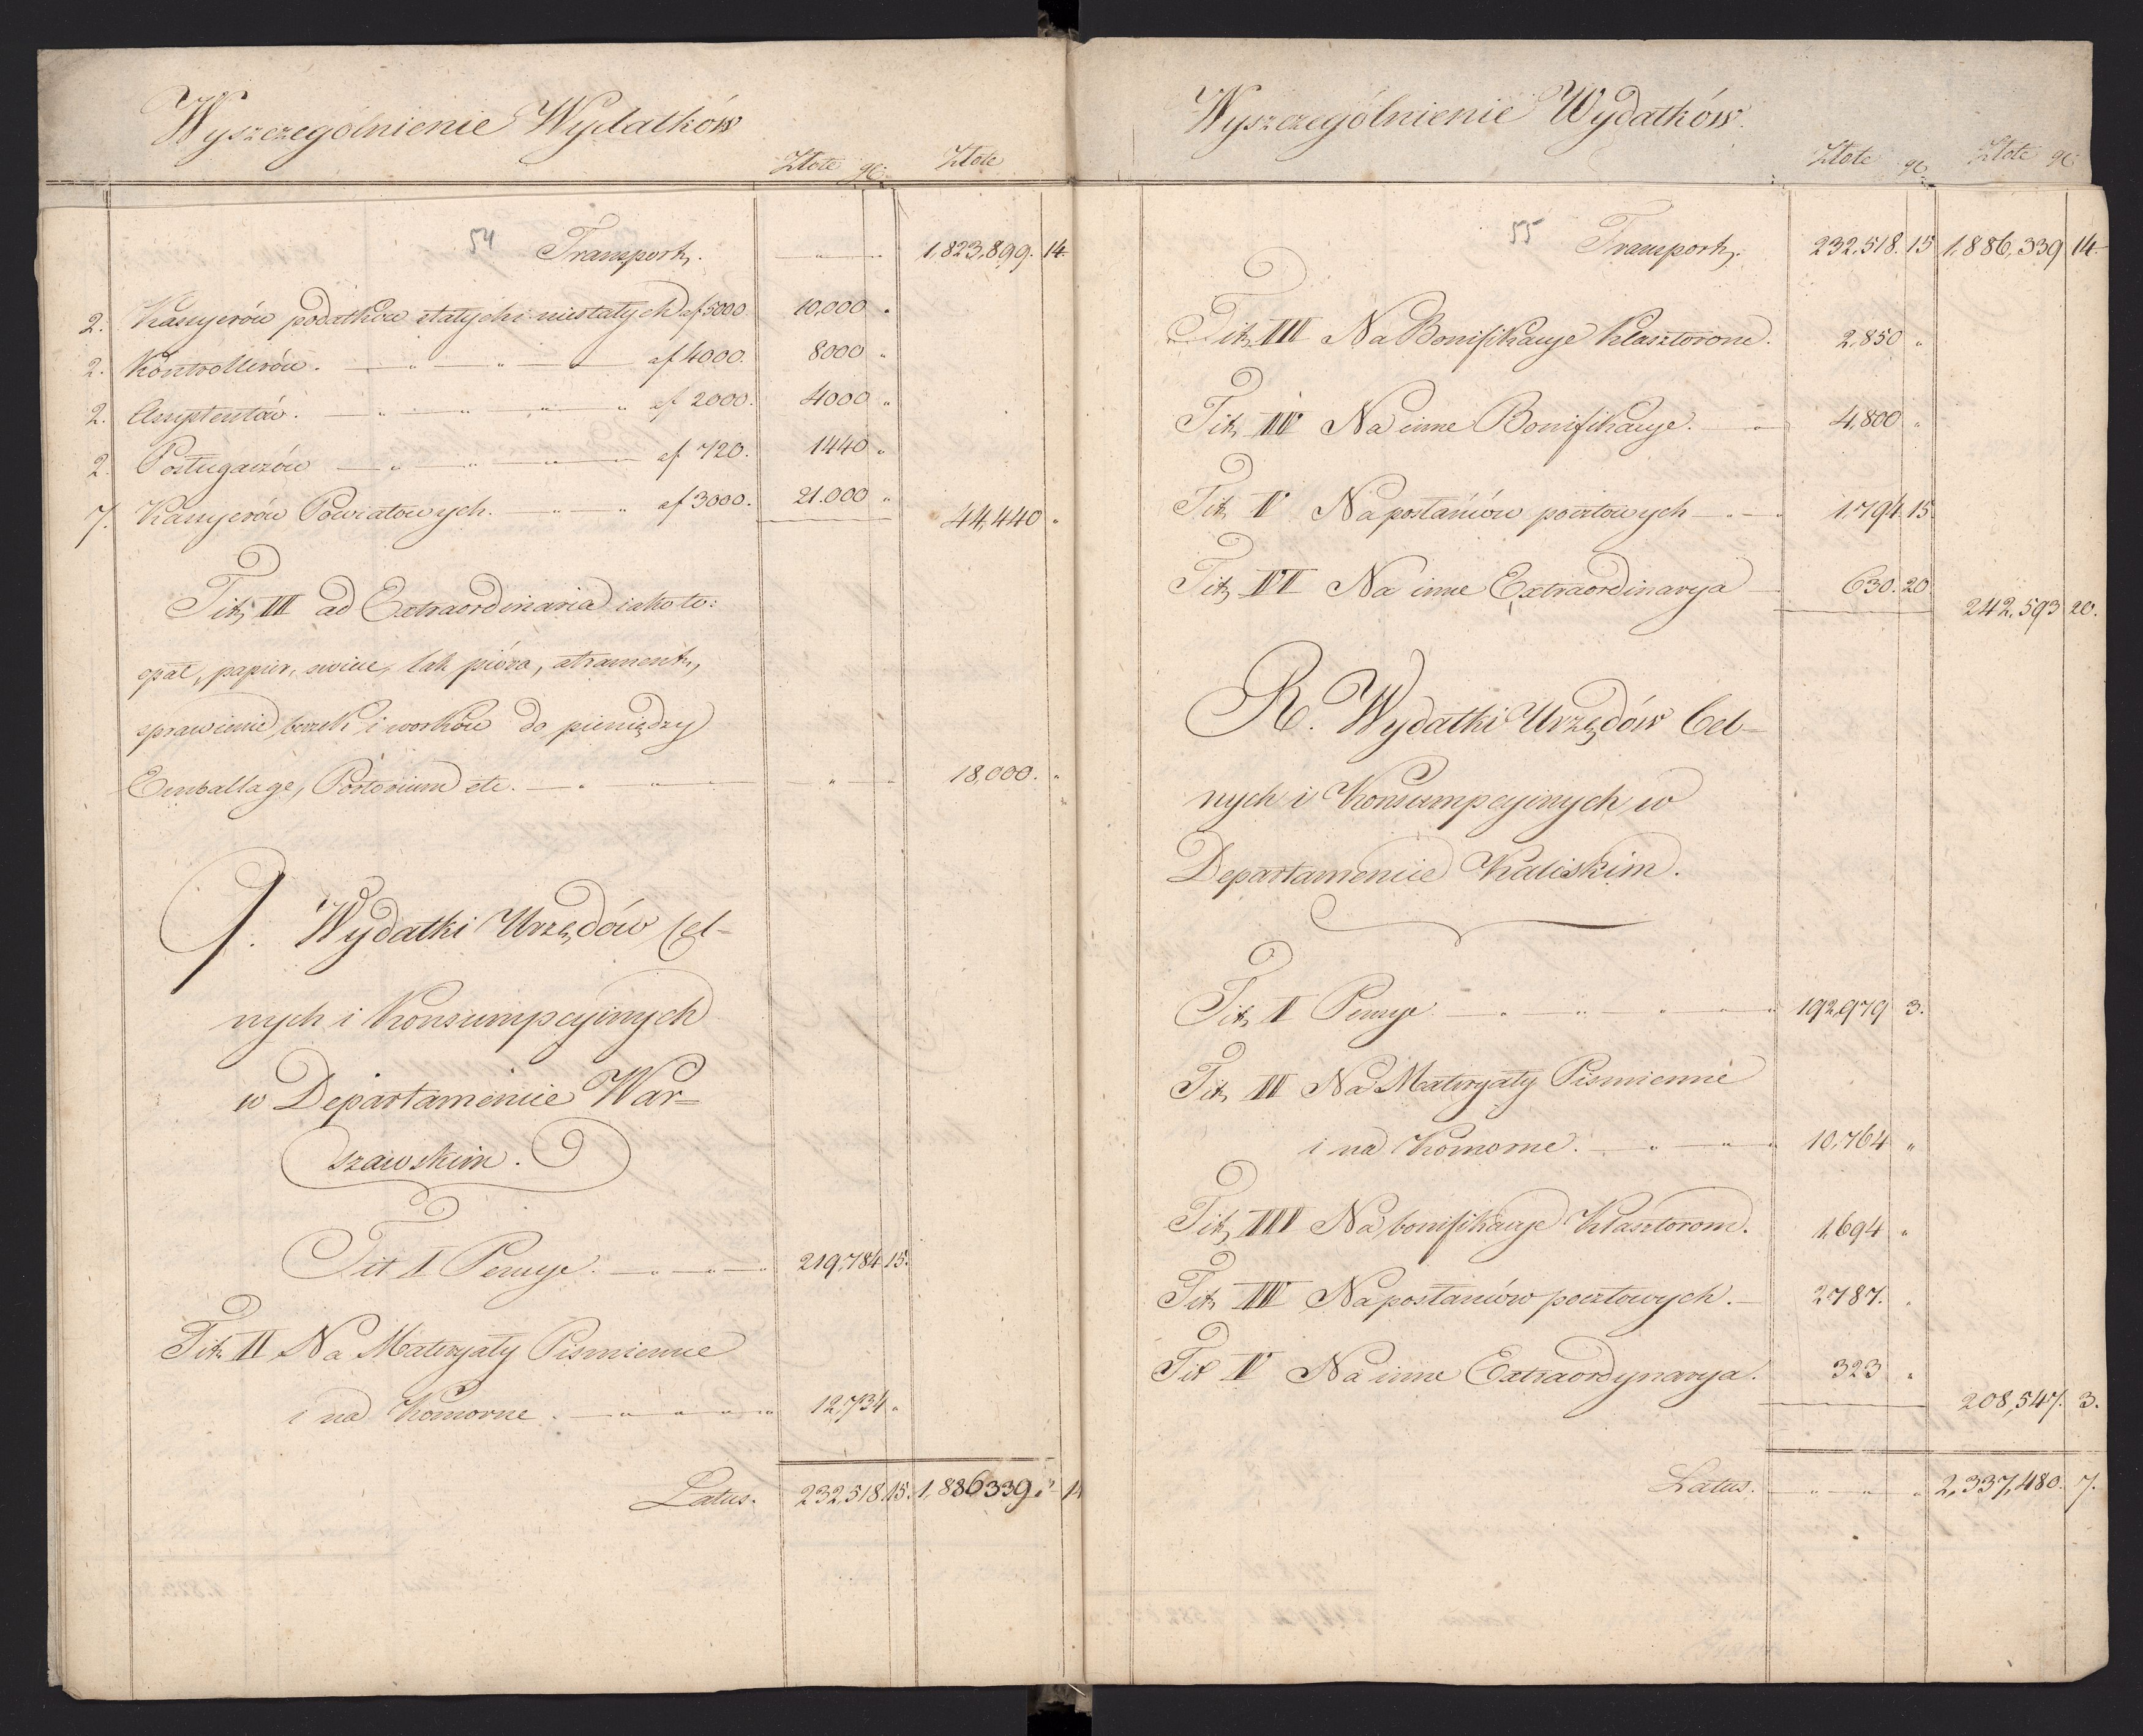 Wyszczególnienie Wydatków
Złote gr. Złote
54 Transport. 1,823,899. 14
2. Kassyerów podatków stałych i niestałych af 5000. 10,000 "
2. Kontrollerów. af 4000. 8000 "
2. Assystentów. af 2000. 4000 "
2. Posługaczów af 720. 1440 "
7. Kassyerów Powiatowych. af 3000. 21.000 " 44,440 "
Tit. III ad Extraordinaria iako to:
opał, papier, swiece, lak pióra, atrament,
sprawienie beczek i worków do pieniędzy
Emballage, Portorium etc. 18,000. "
Q. Wydatki Urzędów Cel-
nych i Konsumpcyinych
w Departamencie War=
szawskim.
Tit I Pensye. 219,784 15.
Tit. II Na Materyały Pismienne
i na Komorne 12,734 "
Latus. 232,518. 15. 1,886339. 14
Wyszczególnienie Wydatków.
Złote gr. Złote gr
55 Transport. 232,518. 15 1,886,339 14.
Tit. III Na Bonifikacye Klasztorom. 2,850 "
Tit. IV Na inne Bonifikacye. 4,800 "
Tit. V Na posłańców pocztowych 1,794. 15.
Tit. VI Na inne Extraordinarya 630. 20 242,593 20.
R. Wydatki Urzędów Cel-
nych i Konsumpcyinych w
Departamencie Kaliskim.
Tit. I Pensye. 192,979 3.
Tit. II Na Materyały Pismienne
i na Komorne. 10,764 "
Tit. III Na bonifikacye Klasztorom. 1,694 "
Tit. IV Na posłańców pocztowych. 2787. "
Tit V Na inne Extraordynarya. 323 "
208,547. 3.
Latus. 2,337,480. 7.